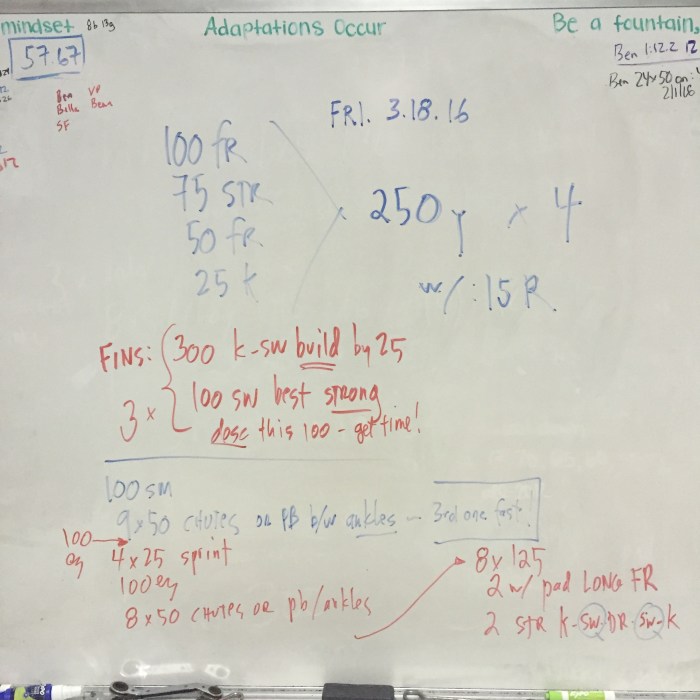 mindset 8b 13g
Adaptations Occur
Be a fountain,
57.67
Ben 1:12.2 12
Ben 24x50 on :4
2/1/16
Ben VP
Billie Bear
SF
FRI. 3.18.16
100 fR
75 STR
50 fR
25 k
250y x 4
w/ :15 R.
FINS: 300 k-sw build by 25
3x 100 sw best strong
dose this 100 - get time!
100 sm
9x50 CHUTES or PB b/w ankles - 3rd one fast!
100 ez
4x25 sprint
100 ez
8x50 CHUTES or pb/ankles
8x125
2 w/ pad LONG FR
2 STR k-sw OR sw-k